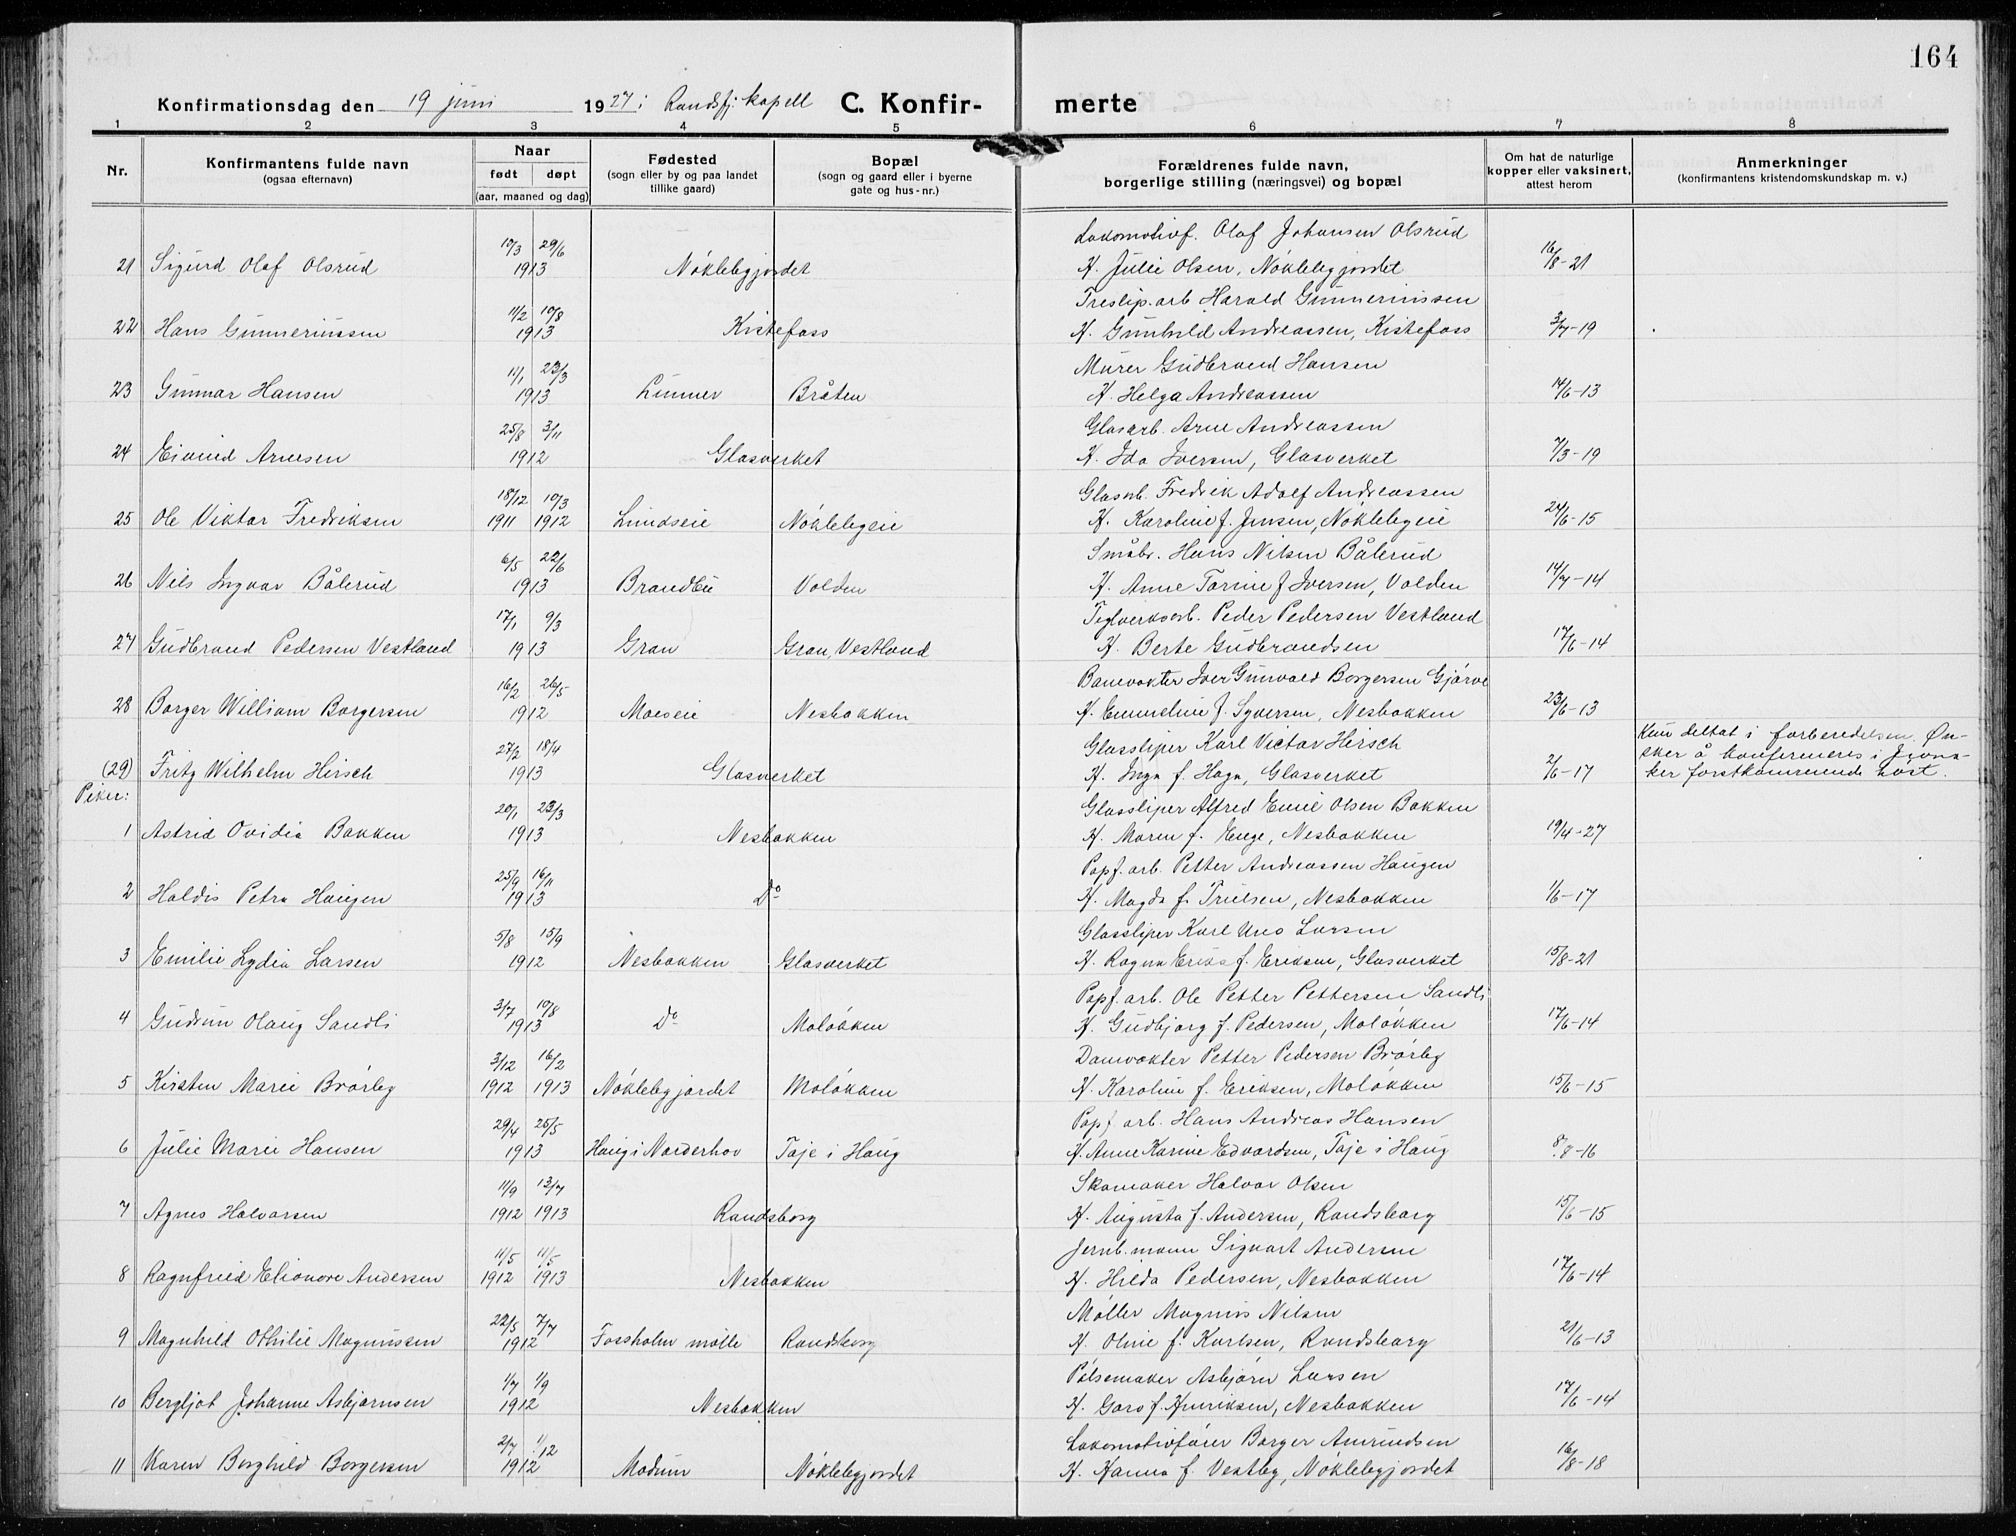 164
Konfirmationsdag den 19 juni 1927 i Randsfj. kapell C. Konfir- merte
1 2 3 4 5 6 7 8
Nr. Konfirmantens fulde navn (ogsaa efternavn) Naar født døpt (aar, maaned og dag) Fødested (sogn eller by og paa landet tillike gaard) Bopæl (sogn og gaard eller i byerne gate og hus-nr.) Forældrenes fulde navn, borgerlige stilling (næringsvei) og bopæl Om hat de naturlige kopper eller vaksinert, attest herom Anmerkninger (konfirmantens kristendomskundskap m. v.)
10/3 29/6 Lokomotivf. Olaf Johansen Olsrud
21 Sigurd Olaf Olsrud 1913 Nøklebygjordet H. Julie Olsen, Nøklebygjordet 16/8-21
11/2 10/8 Treslip.arb Harald Gunneriussen
22 Hans Gunneriussen 1913 Kistefoss H. Gunhild Andreassen, Kistefoss 3/7-19
11/1 23/3 Murer Gudbrand Hansen
23 Gunnar Hansen 1913 Lunner Bråten H. Helga Andreassen 14/6-13
25/8 3/11 Glasarb. Arne Andreassen
24 Eivind Arnesen 1912 Glasverket H. Ida Iversen, Glasverket 7/3-19
18/12 10/3 Glasarb. Fredrik Adolf Andreassen
25 Ole Viktor Fredriksen 1911 1912 Lundseie Nøklebyeie H. Karoline f. Jensen, Nøklebyeie 24/6-15
6/5 22/6 Småbr. Hans Nilsen Bålerud
26 Nils Ingvar Bålerud 1913 Brandbu Volden H. Anne Torine f Iversen, Volden 14/7-14
17/1 9/3 Teglverksarb. Peder Pedersen Vestland
27 Gudbrand Pedersen Vestland 1913 Gran Gran, Vestland H. Berte Gudbrandsen 17/6-14
16/2 26/5 Banevokter Iver Gunvald Borgersen
28 Borger William Borgersen 1912 Moeseie Nesbakken H. Emmeline f. Syversen, Nesbakken 23/6-13
27/2 18/4 Glassliper Karl Victor Hirsch Kun deltat i forberedelsen. Øn-
(29) Fritz Wilhelm Hirsch 1913 Glasverket H. Inga f. Haga, Glasverket 2/6-17 sker å konfirmeres i Jevna-
ker førstkommende høst.
Piker:
20/1 23/3 Glassliper Alfred Emil Olsen Bakken
1 Astrid Ovidia Bakken 1913 Nesbakken H. Maren f. Enge, Nesbakken 19/4-27
25/9 16/11 Papf. arb. Petter Andreassen Haugen
2 Haldis Petra Haugen 1913 Do H. Magda f. Trulsen, Nesbakken 1/6-17
5/8 15/9 Glassliper Karl Uno Larsen
3 Emilie Lydia Larsen 1912 Nesbakken Glasverket H. Ragna Erika f. Eriksen, Glasverket 15/8-21
3/7 10/8 Papf. arb. Ole Petter Pettersen Sandli
4 Gudrun Olaug Sandli 1913 Do Moløkken H. Gudbjørg f. Pedersen, Moløkken 17/6-14
3/12 16/2 Damvokter Petter Pedersen Brørby
5 Kirsten Marie Brørby 1912 1913 Nøklebygjordet Moløkken H. Karoline f. Eriksen, Moløkken 15/6-15
29/4 25/5 Papf. arb. Hans Andreas Hansen
6 Julie Marie Hansen 1913 Haug i Norderhov Taje i Haug H. Anne Karine Edvardsen, Taje i Haug 8/8-16
11/9 13/7 Skomaker Halvor Olsen
7 Agnes Halvorsen 1912 1913 Randsborg H. Augusta f. Andersen, Randsborg 15/6-15
11/5 11/5 Jernb. mann Sigvart Andersen
8 Ragnfried Elionore Andersen 1912 1913 Nesbakken H. Hilda Pedersen, Nesbakken 17/6-14
22/5 7/7 Møller Magnus Nilsen
9 Magnhild Othilie Magnussen 1912 Fossholm mølle Randsborg H. Oline f. Karlsen, Randsborg 21/6-13
1/7 1/9 Pølsemaker Asbjørn Larsen
10 Bergljot Johanne Asbjørnsen 1912 Nesbakken H. Goro f. Henriksen, Nesbakken 17/6-14
2/7 1/12 Lokomotivfører Borger Amundsen
11 Karen Borghild Borgersen 1912 Modum Nøklebygjordet H. Hanna f. Vestby, Nøklebygjordet 16/8-18